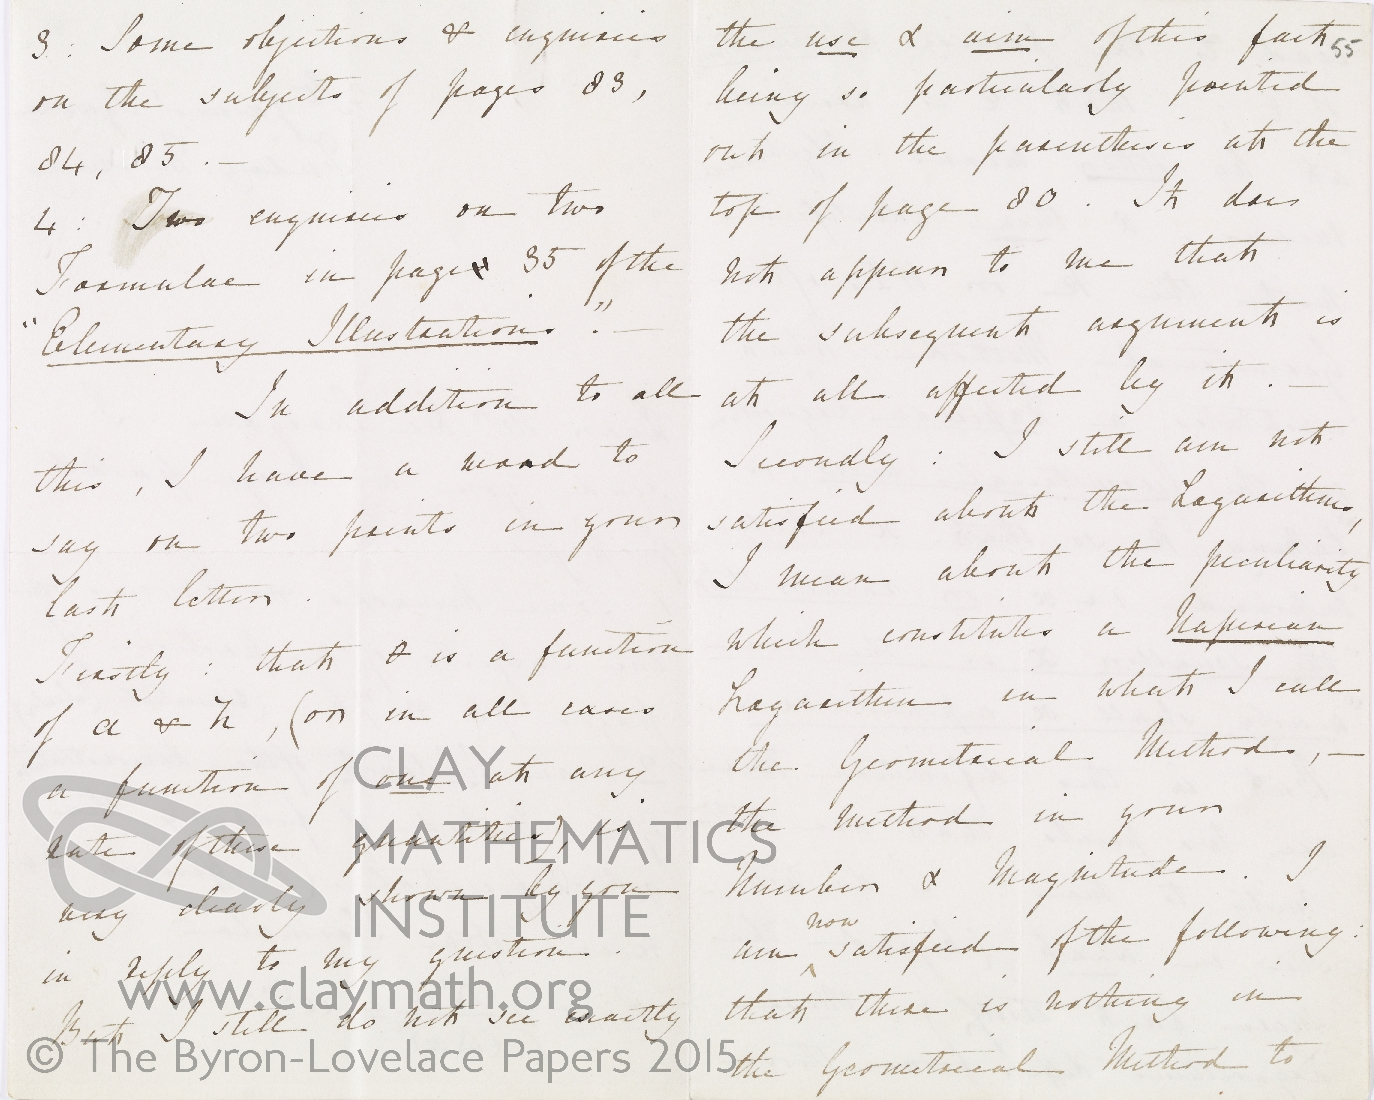 3: Some objections & enquiries
on the subjects of pages 83,
84, 85. —
4: Two enquiries on two
Formulae in page 35 of the
"Elementary Illustrations". —
In addition to all
this, I have a word to
say on two points in your
last letter.
Firstly: that θ is a function
of a & h, (or in all cases
a function of one at any
rate of these quantities), is
very clearly shown by you
in reply to my question.
But I still do not see exactly
the use & aim of this fact
55
being so particularly pointed
out in the parenthesis at the
top of page 80. It does
not appear to me that
the subsequent argument is
at all affected by it. —
Secondly: I still am not
satisfied about the Logarithms,
I mean about the peculiarity
which constitutes a Naperian
Logarithm in what I call
the Geometrical Method, —
the method in your
Number & Magnitude. I
am now satisfied of the following:
that there is nothing in
the Geometrical Method to
CLAY
MATHEMATICS
INSTITUTE
www.claymath.org
© The Byron-Lovelace Papers 2015